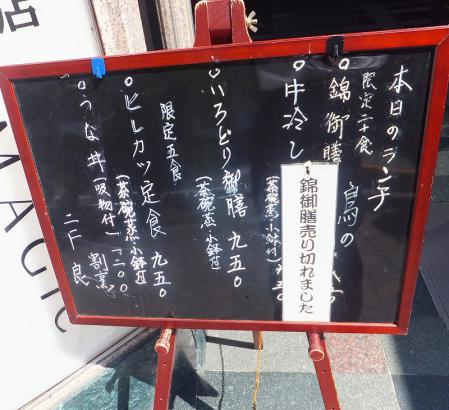 本日のランチ
限定二十食
錦御膳
鳥の
牛冷し
(茶碗蒸小鉢付) 九五〇
錦御膳売り切れました
いろどり御膳 九五〇
(茶碗蒸小鉢付)
限定五食
ヒレカツ定食 九五〇
(茶碗蒸小鉢付)
うな丼(吸物付) 一二〇〇
割烹
二下良
店
MAGIC